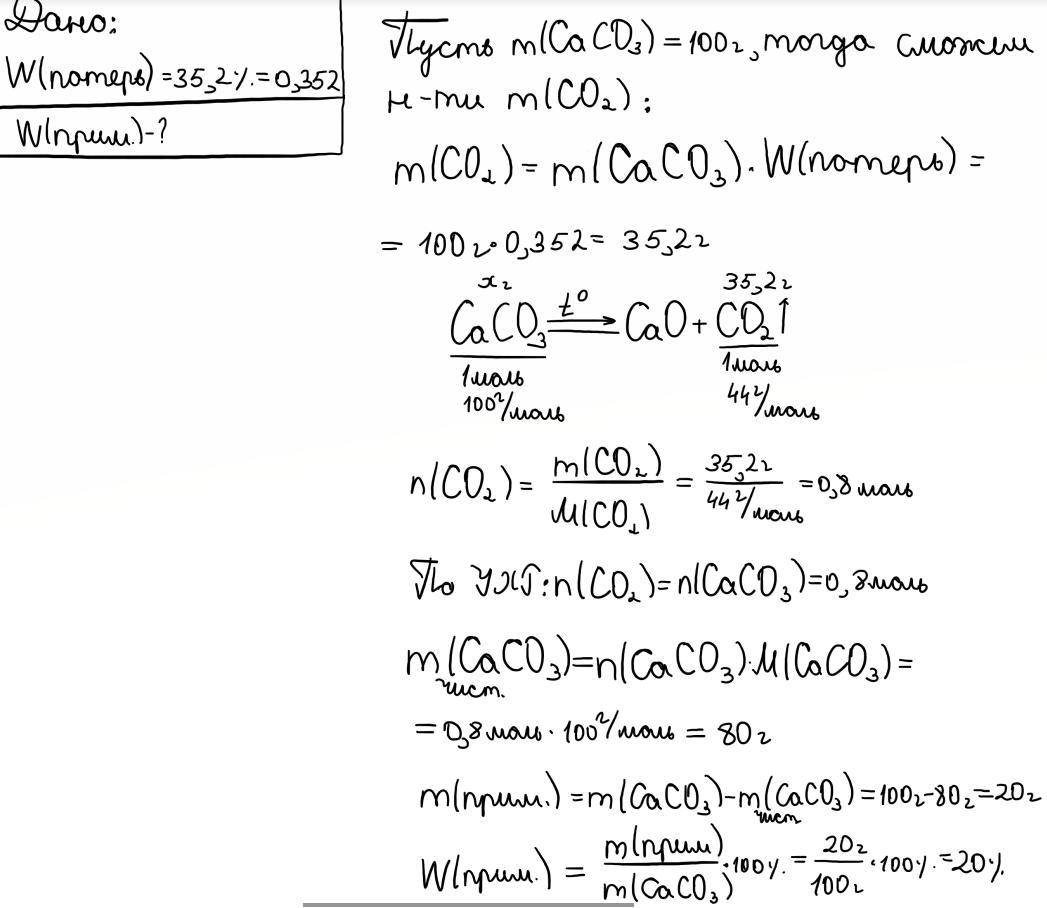 Дано:
W(потерь)=35,2%=0,352
W(прим.)-?
Пусть m(CaCO₃)=100г, тогда сможем
н-ти m(CO₂):
m(CO₂)=m(CaCO₃)·W(потерь)=
= 100г·0,352= 35,2г
xг 35,2г
CaCO₃ t° CaO+CO₂↑
1моль 1моль
100г/моль 44г/моль
n(CO₂)= m(CO₂)/M(CO₂) = 35,2г/44г/моль =0,8моль
По УХР:n(CO₂)=n(CaCO₃)=0,8моль
m(CaCO₃)=n(CaCO₃)·M(CaCO₃)=
чист.
=0,8моль·100г/моль = 80г
m(прим.)=m(CaCO₃)-m(CaCO₃)=100г-80г=20г
чист
W(прим.) = m(прим)/m(CaCO₃)·100%=20г/100г·100%=20%